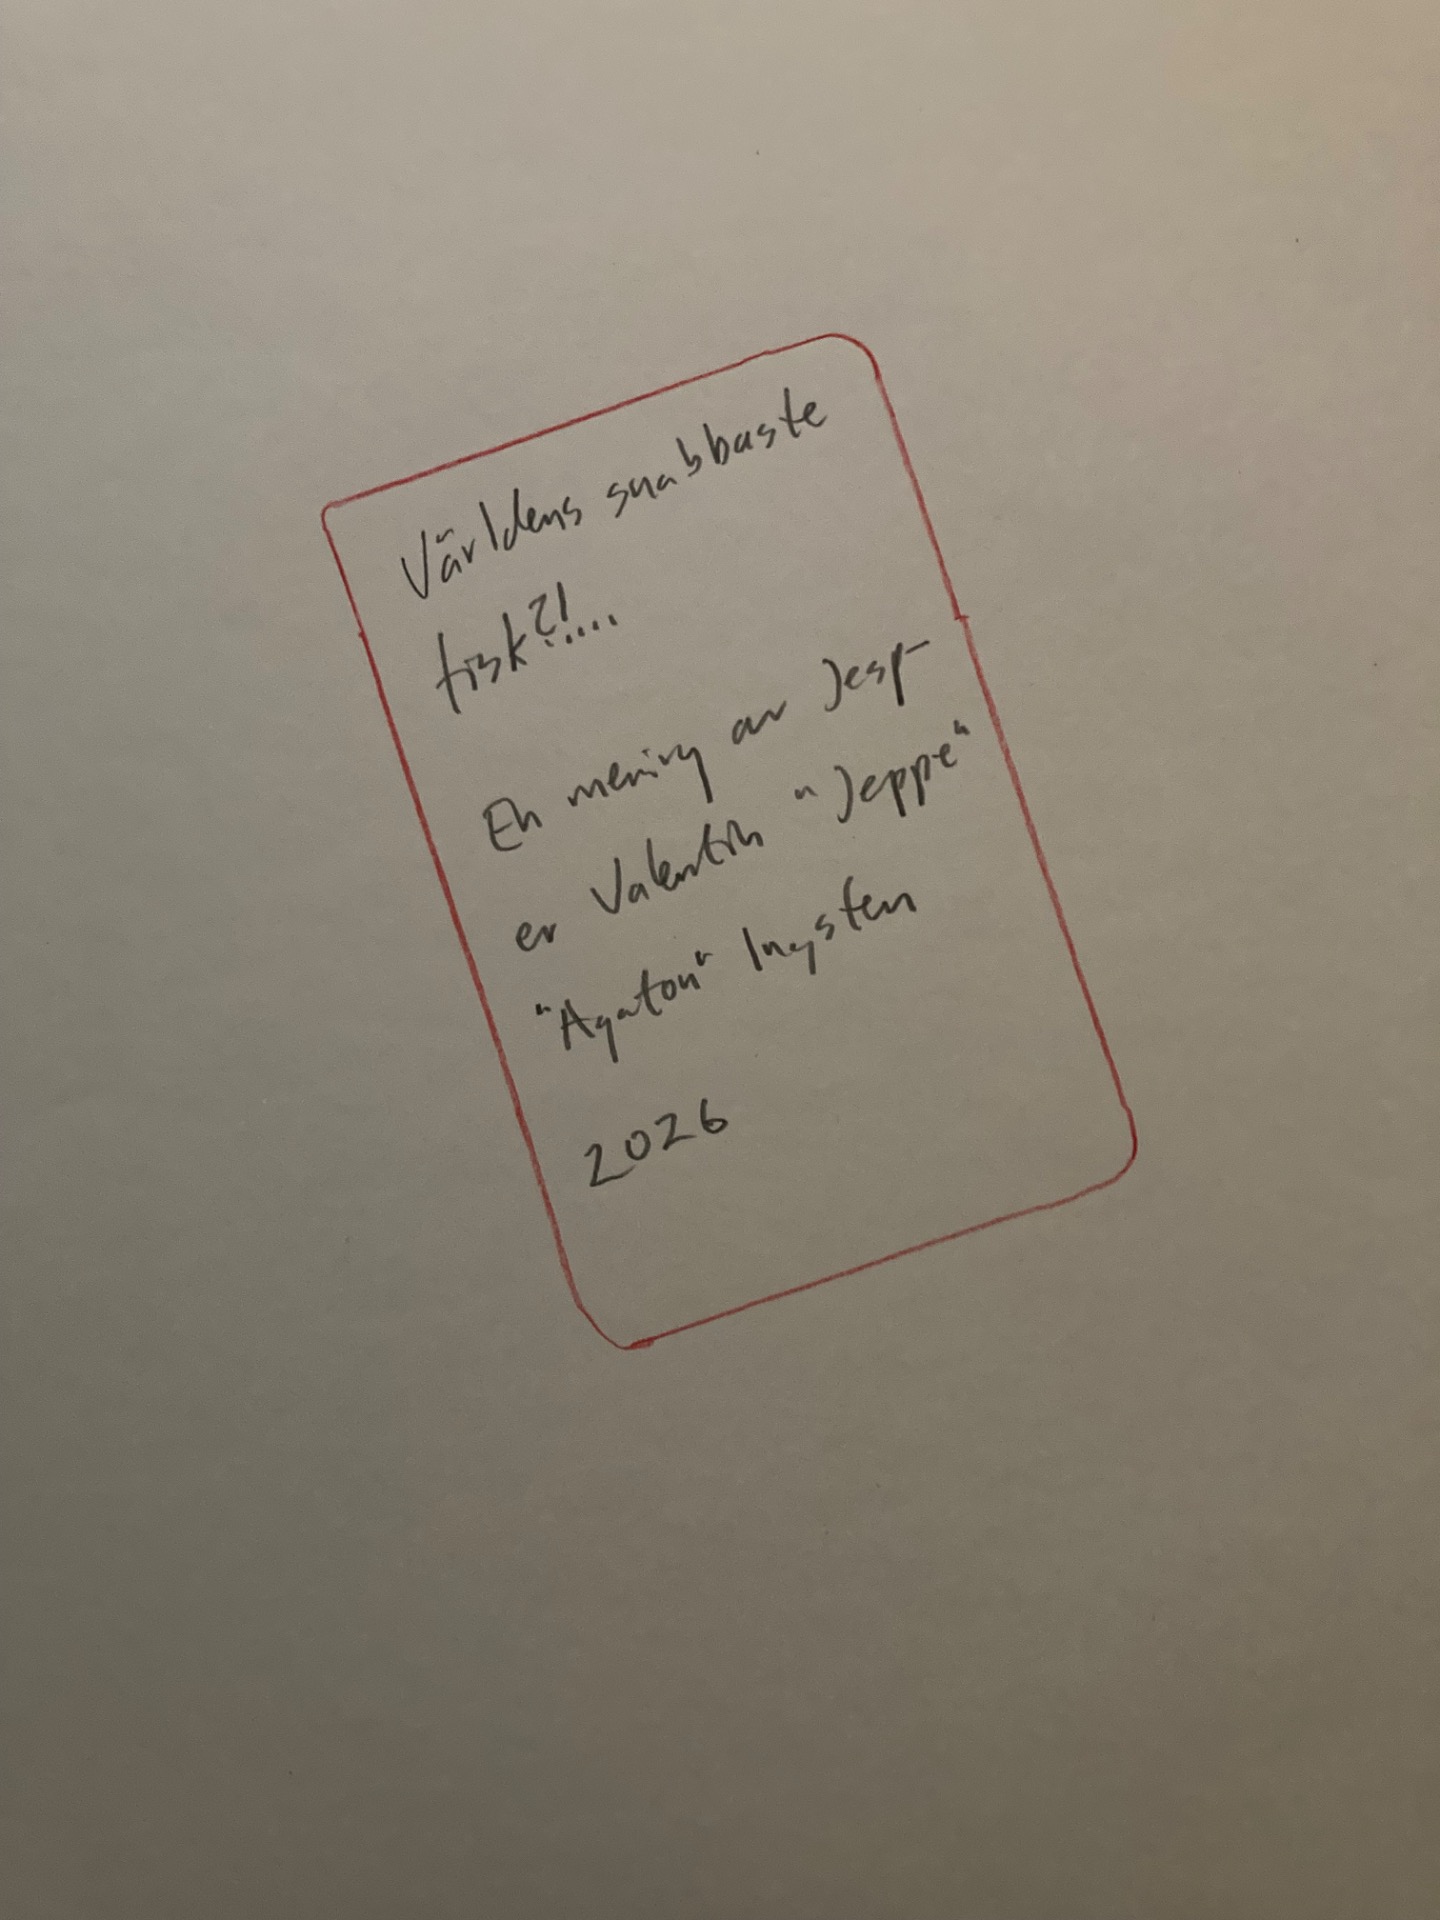 Världens snabbaste
fisk?!....
En mening av Jesp-
er Valentin "Jeppe"
"Agaton" Ingsten
2026